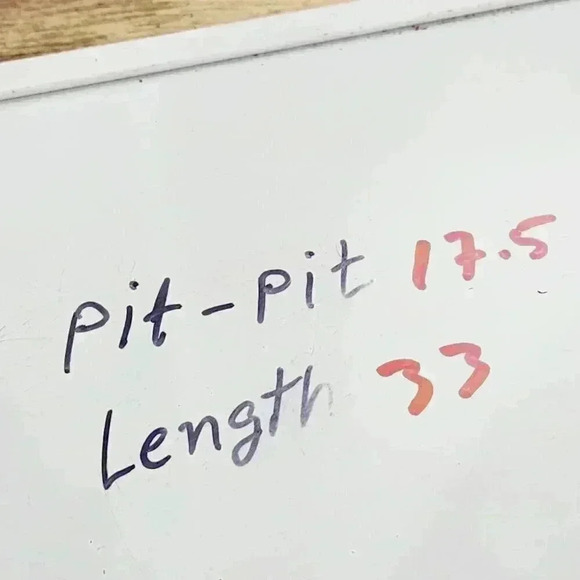 pit-pit 17.5
Length 33